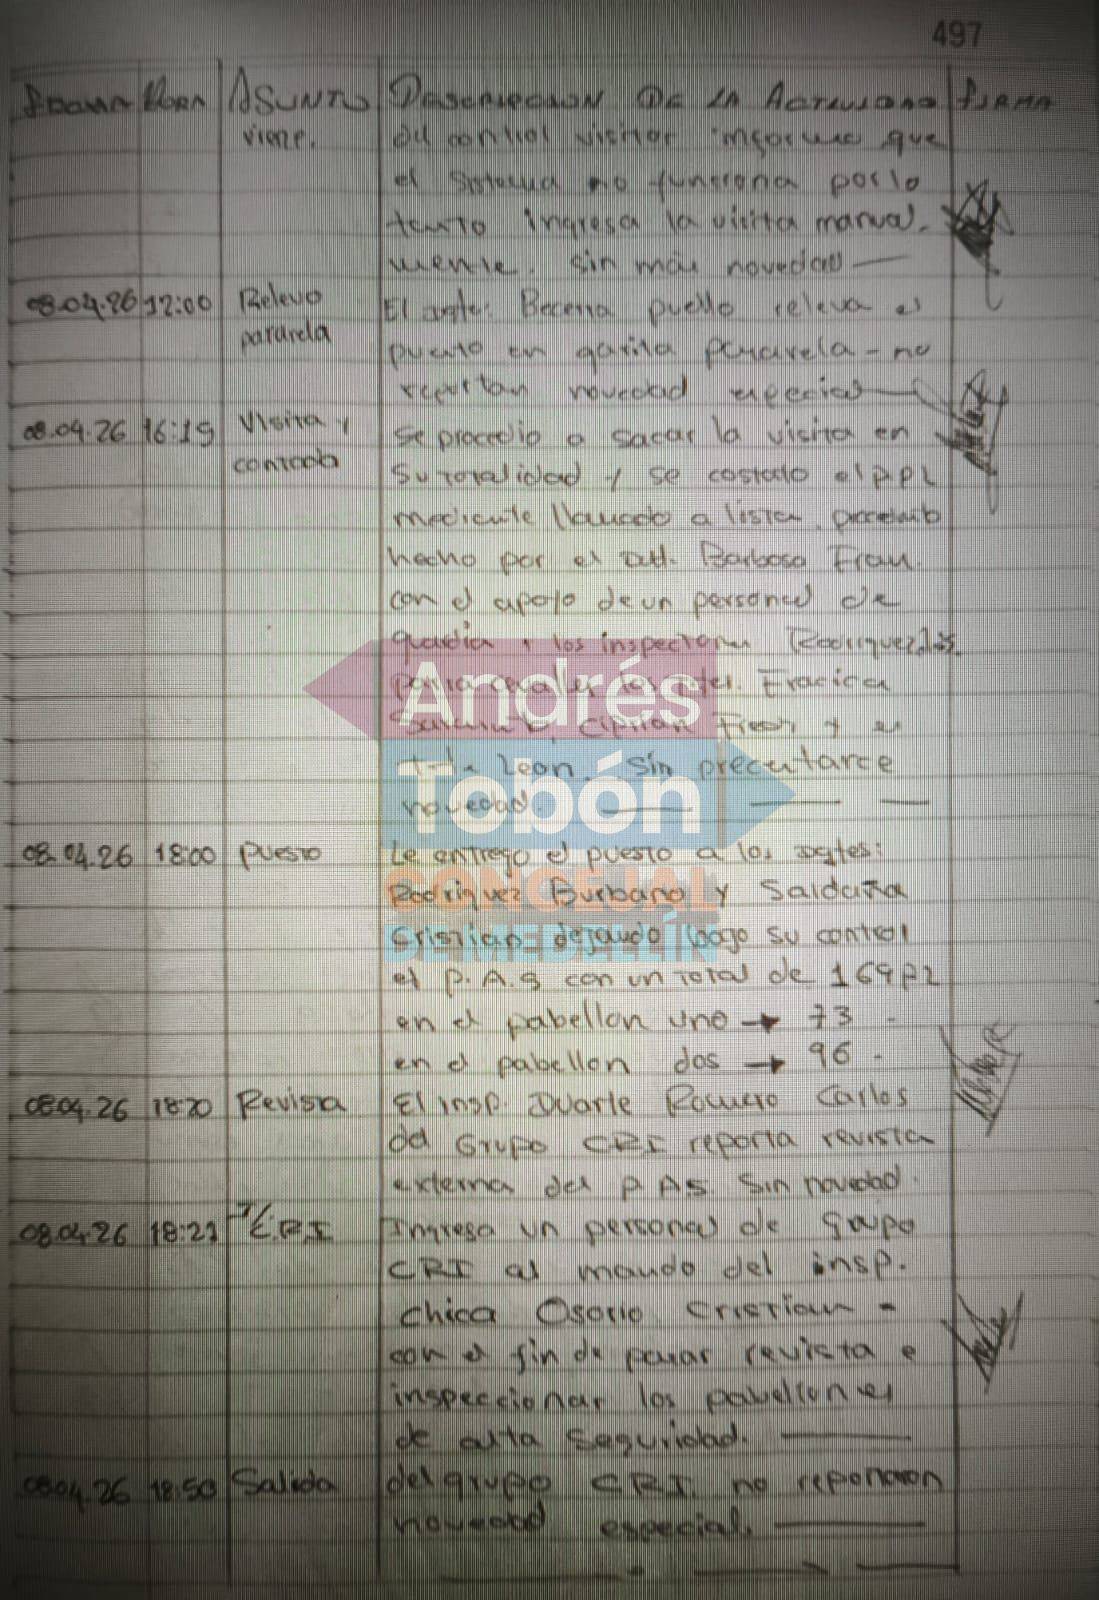 497
Fecha Hora Asunto Descripcion de la Actividad Firma
viene. del control visitor informa que
el sistema no funciona por lo
tanto ingresa la visita manual-
mente. sin más novedad —
08.04.26 12:00 Relevo El Becerra puello releva el
pararela puesto en garita pararela - no
reportan novedad especial —
08.04.26 16:15 Visita y se procedio a sacar la visita en
contada su totalidad y se costato el PPL
mediante llamado a lista,
hecho por el Dtt. Barbosa Fran
con el apoyo de un personal de
guadia, los inspectores Rodriguez
Andrés
Ciprian y el
Leon. Sin precentarce
Tobón
novedad. —
08.04.26 18:00 puesto Le entrego el puesto a los Dgtes:
Rodriguez Burbano y Saldaña
CONCEJAL
Cristian dejando bajo su control
DE MEDELLÍN
el P.A.S con un total de 169 PPL
en el pabellon uno → 73 -
en el pabellon dos → 96 -
08.04.26 18:20 Revista El insp. Duarte Romero Carlos
del Grupo CRI reporta revista
externa del P.A.S. Sin novedad.
08.04.26 18:22 I/C.R.I Ingresa un personal de grupo
CRI al mando del insp.
Chica Osorio Cristian -
con el fin de pasar revista e
inspeccionar los pabellones
de alta seguridad. —
08.04.26 18:50 Salida del grupo CRI. no reportaron
novedad especial. —